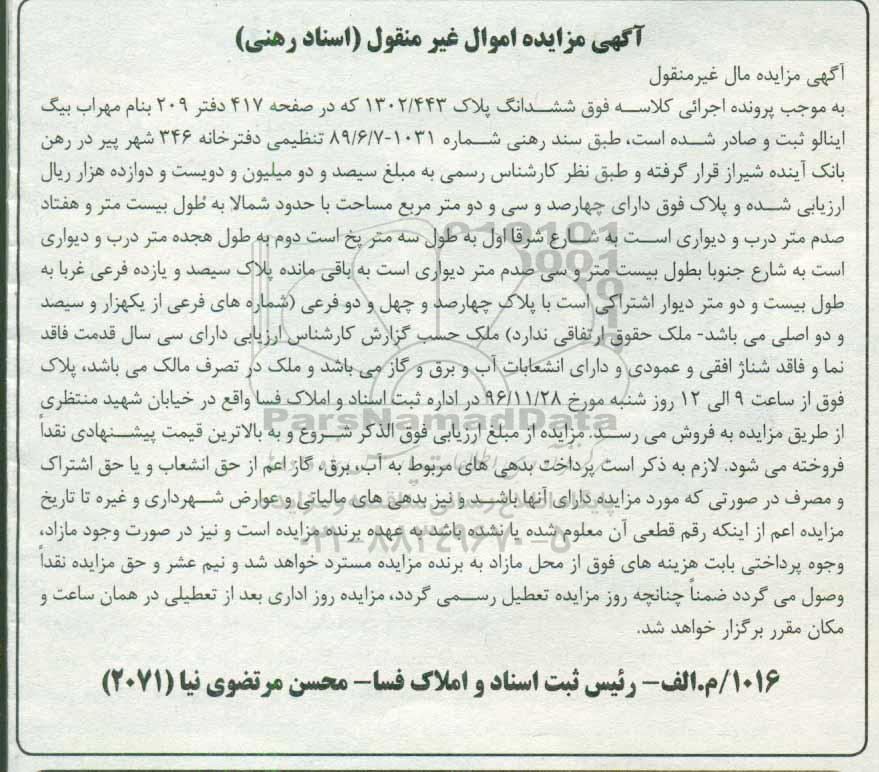 آگهی مزایده اموال غیر منقول (اسناد رهنی)
آگهی مزایده مال غیرمنقول
به موجب پرونده اجرائی کلاسه فوق ششدانگ پلاک ۱۳۰۲/۴۴۳ که در صفحه ۴۱۷ دفتر ۲۰۹ بنام مهراب بیگ
اینالو ثبت و صادر شده است، طبق سند رهنی شماره ۱۰۳۱-۸۹/۶/۷ تنظیمی دفترخانه ۳۴۶ شهر پیر در رهن
بانک آینده شیراز قرار گرفته و طبق نظر کارشناس رسمی به مبلغ سیصد و دو میلیون و دویست و دوازده هزار ریال
ارزیابی شده و پلاک فوق دارای چهارصد و سی و دو متر مربع مساحت با حدود شمالا به طول بیست متر و هفتاد
صدم متر درب و دیواری است به شارع شرقا اول به طول سه متر پخ است دوم به طول هجده متر درب و دیواری
است به شارع جنوبا بطول بیست متر و سی صدم متر دیواری است به باقی مانده پلاک سیصد و یازده فرعی غربا به
طول بیست و دو متر دیوار اشتراکی است با پلاک چهارصد و چهل و دو فرعی (شماره های فرعی از یکهزار و سیصد
و دو اصلی می باشد- ملک حقوق ارتفاقی ندارد) ملک حسب گزارش کارشناس ارزیابی دارای سی سال قدمت فاقد
نما و فاقد شناژ افقی و عمودی و دارای انشعابات آب و برق و گاز می باشد و ملک در تصرف مالک می باشد، پلاک
فوق از ساعت ۹ الی ۱۲ روز شنبه مورخ ۹۶/۱۱/۲۸ در اداره ثبت اسناد و املاک فسا واقع در خیابان شهید منتظری
از طریق مزایده به فروش می رسد. مزایده از مبلغ ارزیابی فوق الذکر شروع و به بالاترین قیمت پیشنهادی نقداً
فروخته می شود. لازم به ذکر است پرداخت بدهی های مربوط به آب، برق، گاز اعم از حق انشعاب و یا حق اشتراک
و مصرف در صورتی که مورد مزایده دارای آنها باشد و نیز بدهی های مالیاتی و عوارض شهرداری و غیره تا تاریخ
مزایده اعم از اینکه رقم قطعی آن معلوم شده یا نشده باشد به عهده برنده مزایده است و نیز در صورت وجود مازاد،
وجوه پرداختی بابت هزینه های فوق از محل مازاد به برنده مزایده مسترد خواهد شد و نیم عشر و حق مزایده نقداً
وصول می گردد ضمناً چنانچه روز مزایده تعطیل رسمی گردد، مزایده روز اداری بعد از تعطیلی در همان ساعت و
مکان مقرر برگزار خواهد شد.
۱۰۱۶/م.الف- رئیس ثبت اسناد و املاک فسا- محسن مرتضوی نیا (۲۰۷۱)
ParsNamadData
۰۲۱-۸۸۳۴۹۶۷۰-۵